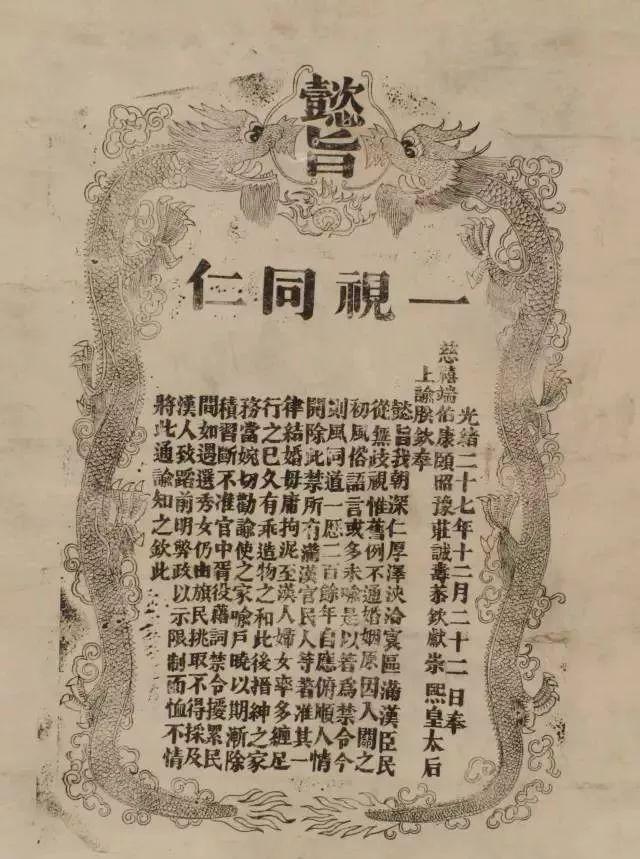 懿旨
一視同仁
光緒二十七年十二月二十二日奉
慈禧端佑康頤昭豫莊誠壽恭欽獻崇熙皇太后
上諭朕欽奉
懿旨我朝深仁厚澤浹洽寰區滿漢臣民
從無歧視惟舊例不通婚姻原因入關之
初風俗語言或多未喻是以著爲禁令今
則風同道一歷二百餘年自應俯順人情
開除此禁所有滿漢官民人等著准其一
律結婚毋庸拘泥至漢人婦女率多纏足
行之已久有乖造物之和此後搢紳之家
務當婉切勸諭使之家喻戶曉以期漸除
積習斷不准官中胥役藉詞禁令擾累民
間如遇選秀女仍由旗民挑取不得採及
漢人致蹈前明弊政以示限制而恤不情
將此通諭知之欽此